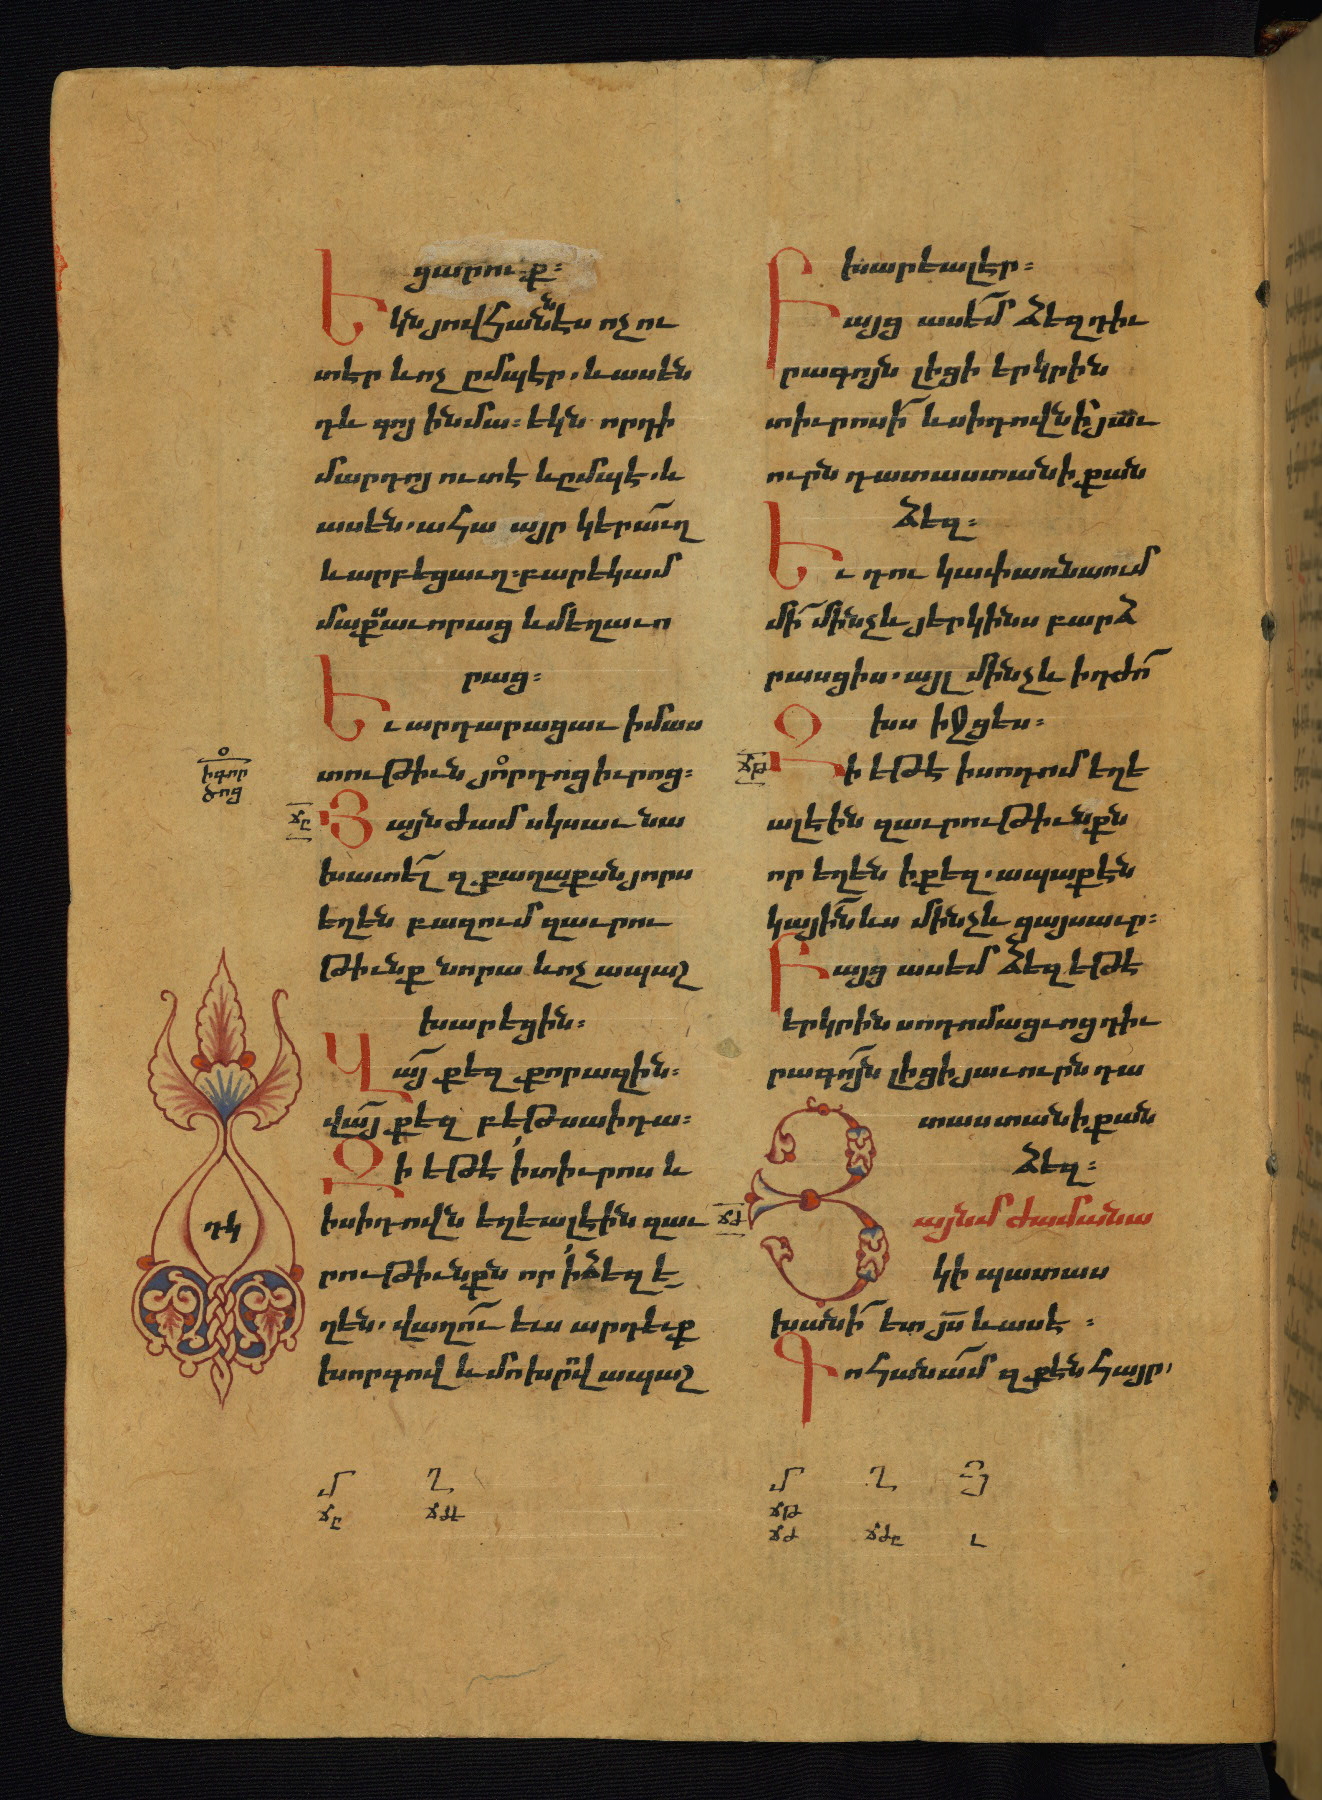 ցարուք։
Եկն յովհաննէս ոչ ու
տէր և ոչ ըմպէր. և ասէն
դև գոյ ի նմա։ եկն որդի
մարդոյ ուտէ և ըմպէ. և
ասեն. ահա այր կերաւղ
և արբեցաւղ. բարեկամ
մաքսաւորաց և մեղաւո
րաց։
Եւ արդարացաւ իմաս
տութիւն յորդոց իւրոց։
ի գոր
ծոց
ճը
Յայնժամ սկսաւ նա
խատել զքաղաքսն յորս
եղեն բազում զաւրու
թիւնք նորա և ոչ ապաշ
խարեցին։
Վայ քեզ քորազին։
վայ քեզ բեթսաիդա։
Զի եթէ ի տիւրոս և
ի սիդովն եղեալ էին զաւ
րութիւնքն որ ի ձեզ ե
ղեն. վաղու ևս արդեւք
խորգով և մոխրով ապաշ
դկ
խարեալ էր։
Բայց ասեմ ձեզ դիւ
րագոյն լիցի երկրին
տիւրոսի և սիդովնի յաւ
ուրն դատաստանի քան
ձեզ։
Եւ դու կափառնաում
մի մինչև յերկինս բարձ
րասցիս. այլ մինչև ի դժո
խս իջցես։
ճթ
Զի եթէ ի սոդոմ եղե
ալ էին զաւրութիւնքն
որ եղեն ի քեզ. ապա քէն
կային ևս մինչև ցայսաւր։
Բայց ասեմ ձեզ եթէ
երկրին սոդոմացւոց դիւ
րագոյն լիցի յաւուրն դա
տաստանի քան
ձեզ։
ճժ
Յայնմ ժամանա
կի պատաս
խանի ետ յս և ասէ։
Գոհանամ զքեն հայր,
մ ղ
ճը ճժե
մ ղ յ
ճթ
ճժ ճժը